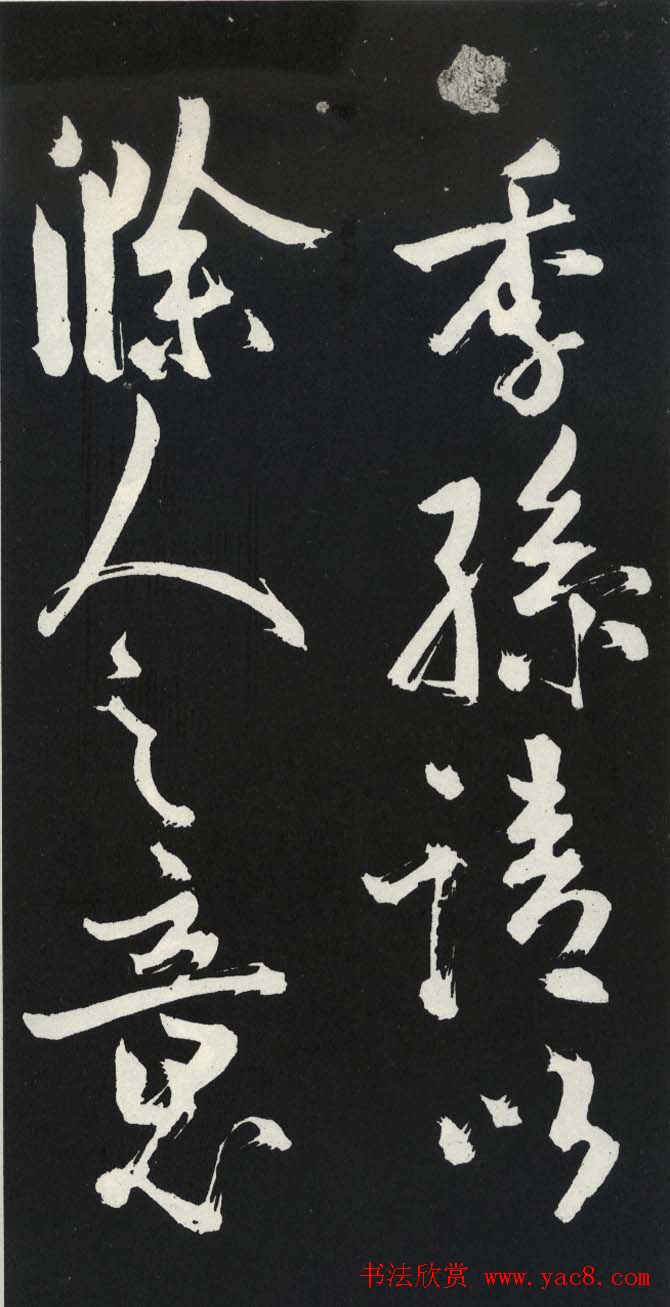 季孫請以
滁人之意
书法欣赏 www.yac8.com